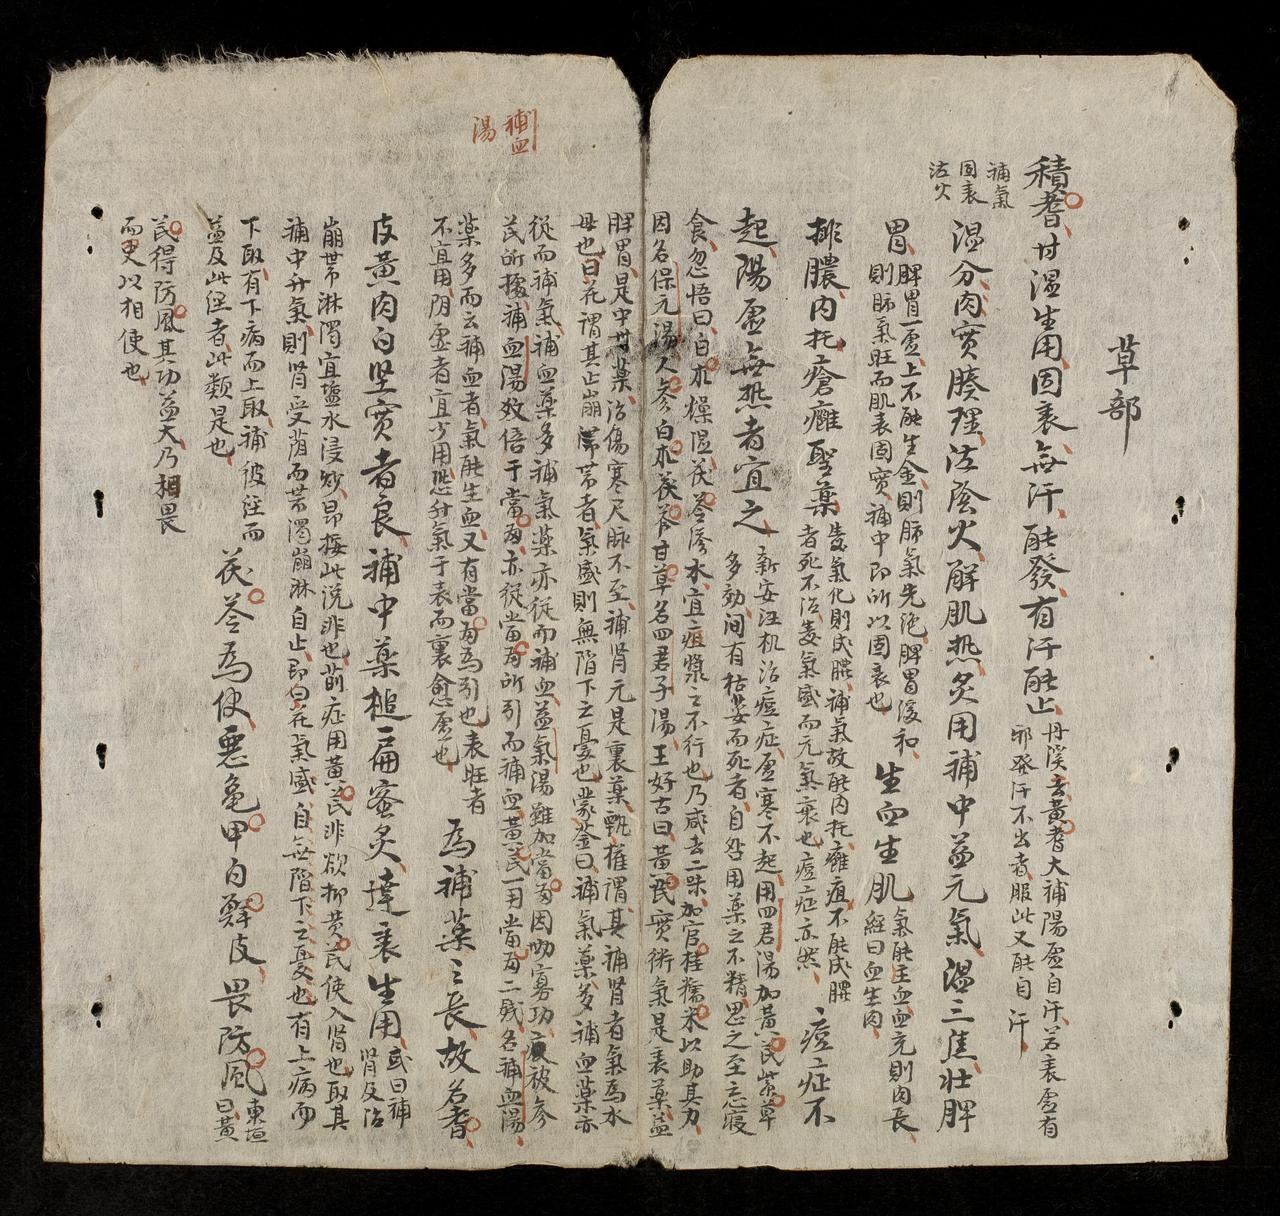 草部
積耆甘溫生用固表無汗能發有汗能止
丹溪云黃耆大補陽虛自汗若表虛有
邪發汗不出者服此又能自汗
補氣
固表
泻火
溫分肉實腠理泻陰火解肌热炙用補中益元氣溫三焦壯脾
胃
脾胃一虛上不能生金則肺氣先絕脾胃緩和
則肺氣旺而肌表固實補中即所以固表也
生血生肌
氣能生血血充則肉長
經曰血生肉
排膿內托瘡癰聖藥
毒氣化則成膿補氣故能內托癰疽不能成膿
者死不治毒氣盛而元氣衰也痘症亦然
痘症不
起陽虛無热者宜之
新安汪机治痘症虛寒不起用四君湯加黃芪紫草
多効間有枯萎而死者自咎用藥之不精思之至忘寢
食忽悟曰白朮燥湿茯苓滲水宜疽漿之不行也乃咸去二味加官桂糯米以助其力
因名保元湯人參白朮茯苓甘草名四君子湯王好古曰黃芪實衛氣是表藥益
脾胃是中州藥治傷寒尺脉不至補腎元是裏藥甄權謂其補腎者氣為水
母也日花謂其止崩帶者氣盛則無陷下之憂也蒙筌曰補氣藥多補血藥亦
從而補氣補血藥多補氣藥亦從而補血益氣湯雖加當歸因勢寡功被參
芪所據補血湯效倍于當歸亦從當歸所引而補血黃芪一用當歸二錢名補血湯
補血
湯
藥多而云補血者氣能生血又有當歸為引也表旺者
不宜用阴虛者宜少用恐升氣于表而裏愈虛也
為補藥之長故名耆
皮黃肉白堅實者良補中藥槌扁蜜炙達表生用
或曰補
腎及治
崩帶淋濁宜鹽水浸炒昂按此說非也前症用黃芪非欲抑黃芪使入腎也取其
補中升氣則腎受蔭而帶濁崩淋自止即日花氣盛自無陷下之憂也有上病而
下取有下病而上取補彼經而
益及此經者此類是也
茯苓為使惡龜甲白鮮皮畏防風
東垣
曰黃
芪得防風其功益大乃相畏
而更以相使也